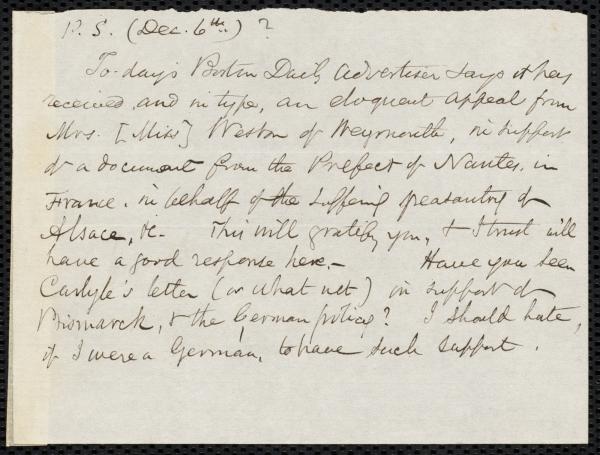 P.S. (Dec. 6th.) ?
To-day's Boston Daily Advertiser says it has
received, and in type, an eloquent appeal from
Mrs. [Miss] Weston of Weymouth, in support
of a document from the Prefect of Nantes, in
France, in behalf of the suffering peasantry of
Alsace, &c. This will gratify you, & I trust will
have a good response here. — Have you seen
Carlyle's letter (or what not) in support of
Bismarck, & the German policy? I should hate,
if I were a German, to have such support.